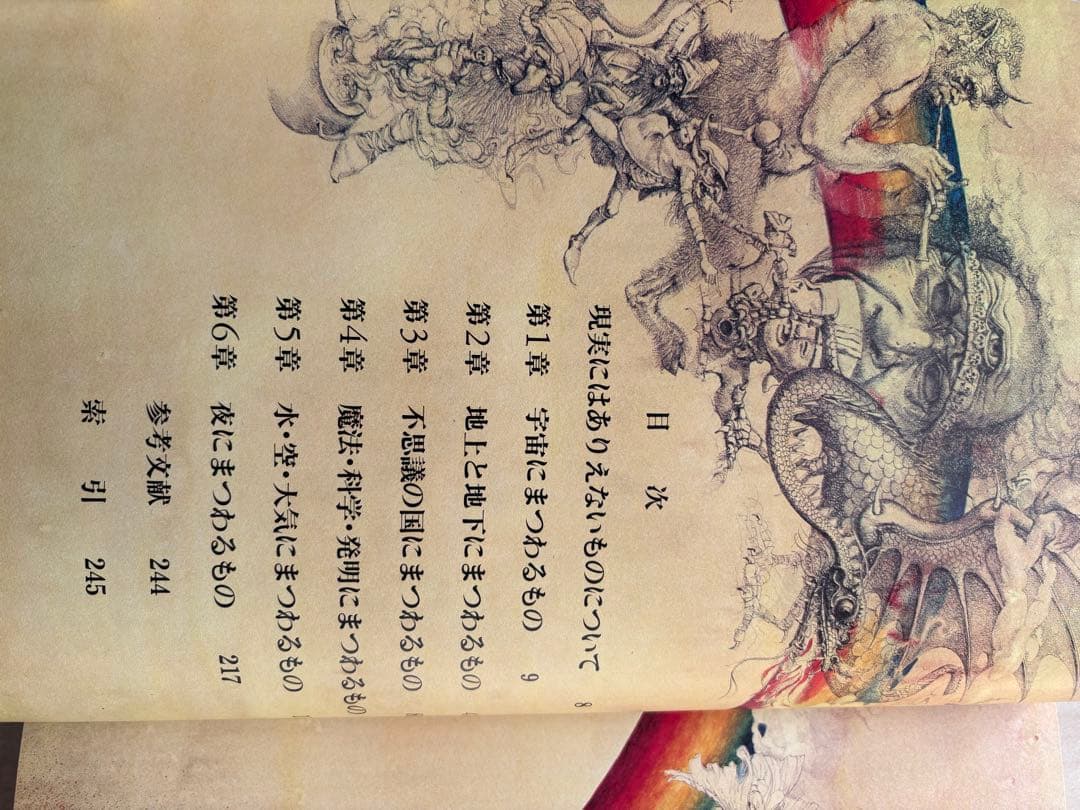 目次
現実にはありえないものについて 8
第1章 宇宙にまつわるもの 9
第2章 地上と地下にまつわるもの
第3章 不思議の国にまつわるもの
第4章 魔法・科学・発明にまつわるもの
第5章 水・空・大気にまつわるもの
第6章 夜にまつわるもの 217
参考文献 244
索引 245